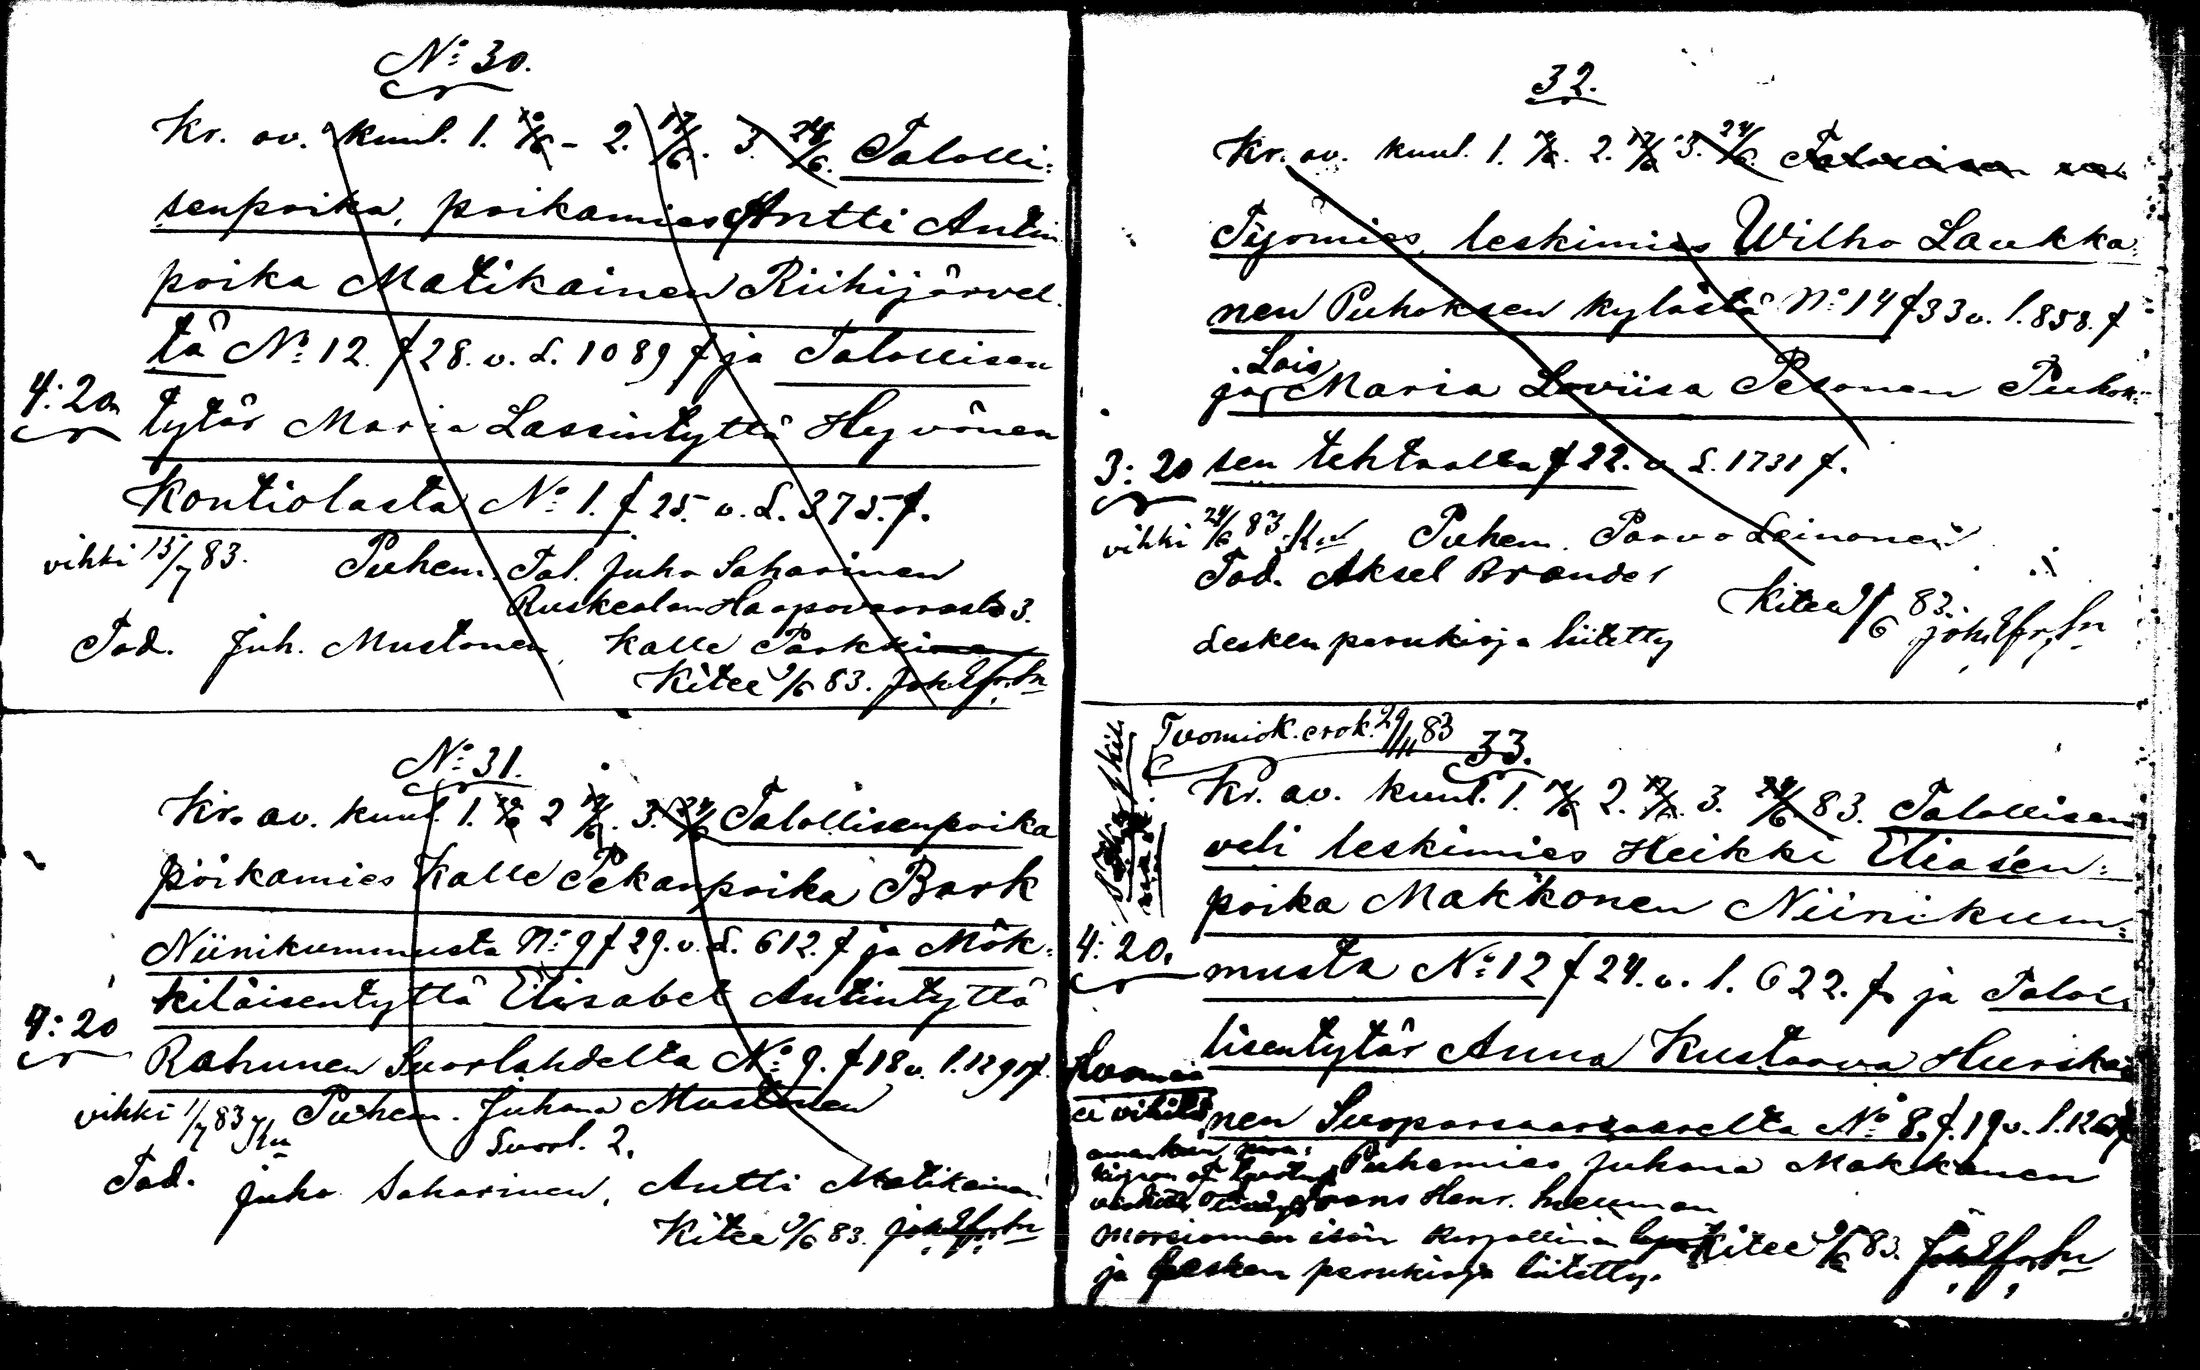 № 30.
Kr. av. kuul. 1. 10/6 - 2. 17/6. 3. 24/6. Talolli=
senpoika, poikamies Antti Antin
poika Matikainen Riihijärvel
tä № 12. f 28. v. S. 1089 f ja Talollisen
4:20 tytär Maria Lassintyttä Hyvönen
Kontiolasta № 1. f 25. v. S. 375. f.
vihki 15/7 83. Puhem. Tal. Juho Saharinen
Ruskealan Haapovaarasta 3.
Tod. Juh. Mustonen, Kalle Parkkinen
Kitee 9/6 83.
№ 31.
Kr. av. kuul. 1. 10/6 2 17/6. 3. 24/6 Talollisenpoika
poikamies Kalle Pekanpoika Bark
Niinikummusta № 9 f 29. v. S. 612. f ja Mök=
kiläisentyttä Elisabet Antintyttä
4:20 Rahunen Suorlahdelta № 9. f 18 v. l. 1291 f.
vihki 1/7 83 Puhem. Juhana Mustonen
Suorl. 2.
Tod. Juho Saharinen, Antti Matikainen
Kitee 9/6 83.
32.
Kr. av. kuul. 1. 10/6. 2. 17/6 3. 24/6.
Työmies, leskimies Wilho Laukka
nen Puhoksen kylästä № 14 f 33 v. l. 858. f
Lois
ja Maria Loviisa Pesonen Puhok=
3:20 sen tehtaalta f 22. v. S. 1731 f.
vihki 24/6 83 Puhem. Paavo Leinonen
Tod. Aksel Brander
Kitee 9/6 83.
Lesken perukirja liitetty
Tuomiok. erok. 29/11 83 33.
Kr. av. kuul. 1. 10/6 2. 17/6. 3. 24/6. 83. Talollisen
veli leskimies Heikki Eliasen=
poika Makkonen Niinikum=
4:20. musta № 12 f 24. v. l. 622. f. ja Talol
lisentytär Anna Kustaava Hurskai
ei vihitä nen Suoparsaarelta № 8. f. 19 v. l.
Puhemies Juhana Makkonen
Frans Henr.
morsiamen isän kirjallinen lupa Kitee 9/6 83.
ja lesken perukirja liitetty.